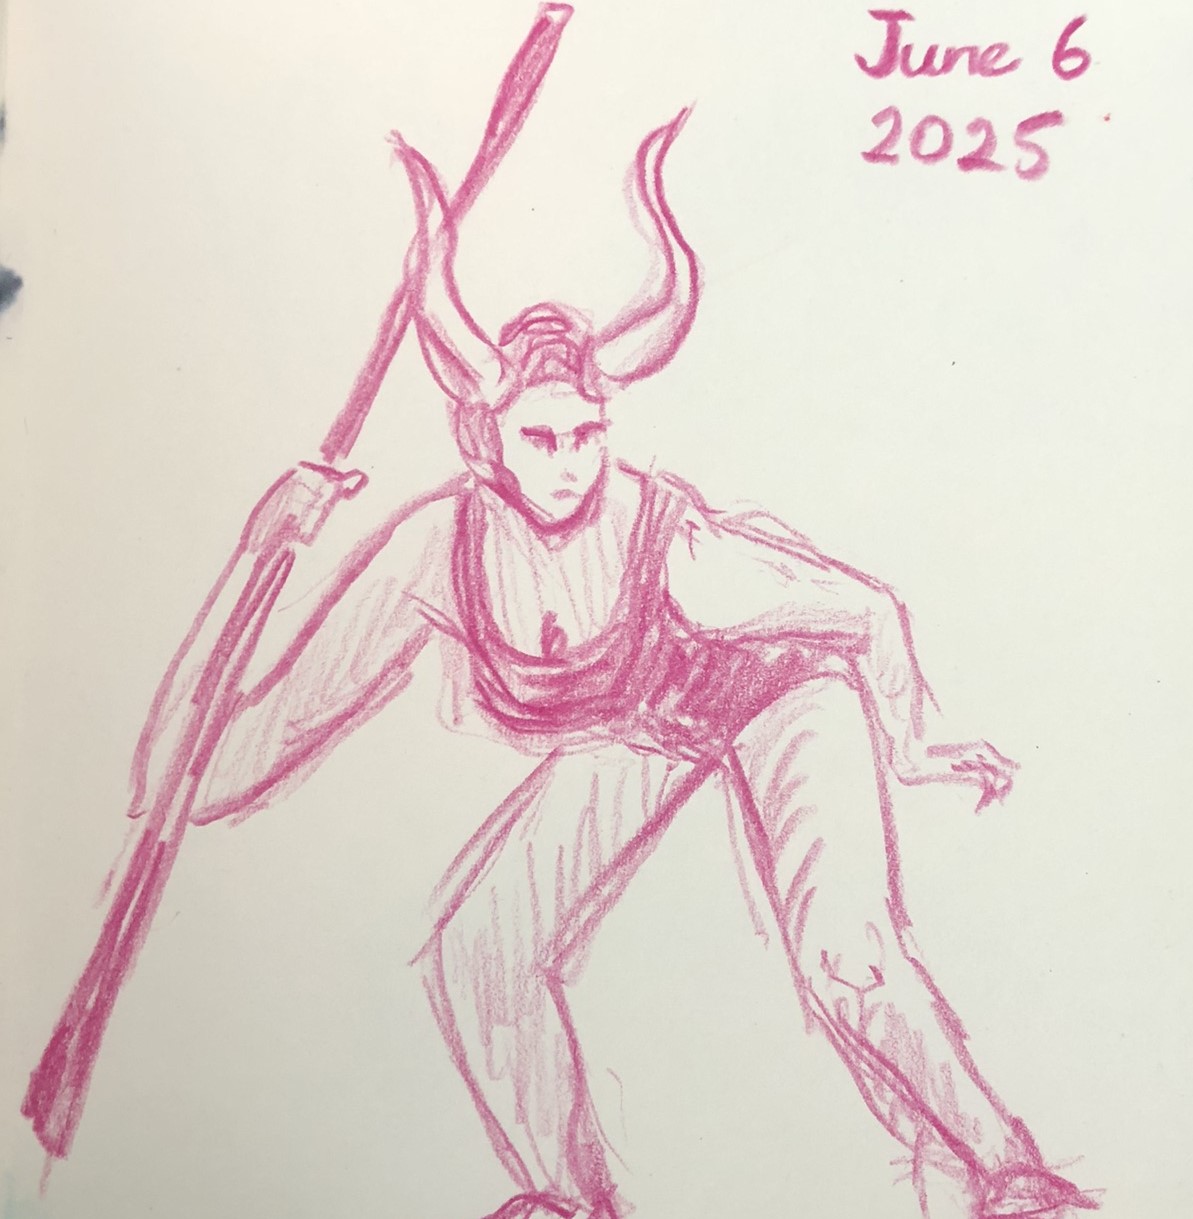 June 6
2025